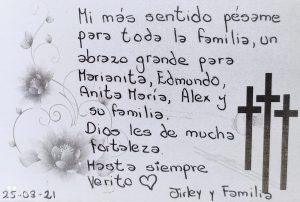 Mi más sentido pésame
para toda la familia, un
abrazo grande para
Marianita, Edmundo,
Anita María, Alex y
su familia.
Dios les de mucha
fortaleza.
Hasta siempre
Verito ♡
25-03-21 Jirley y Familia